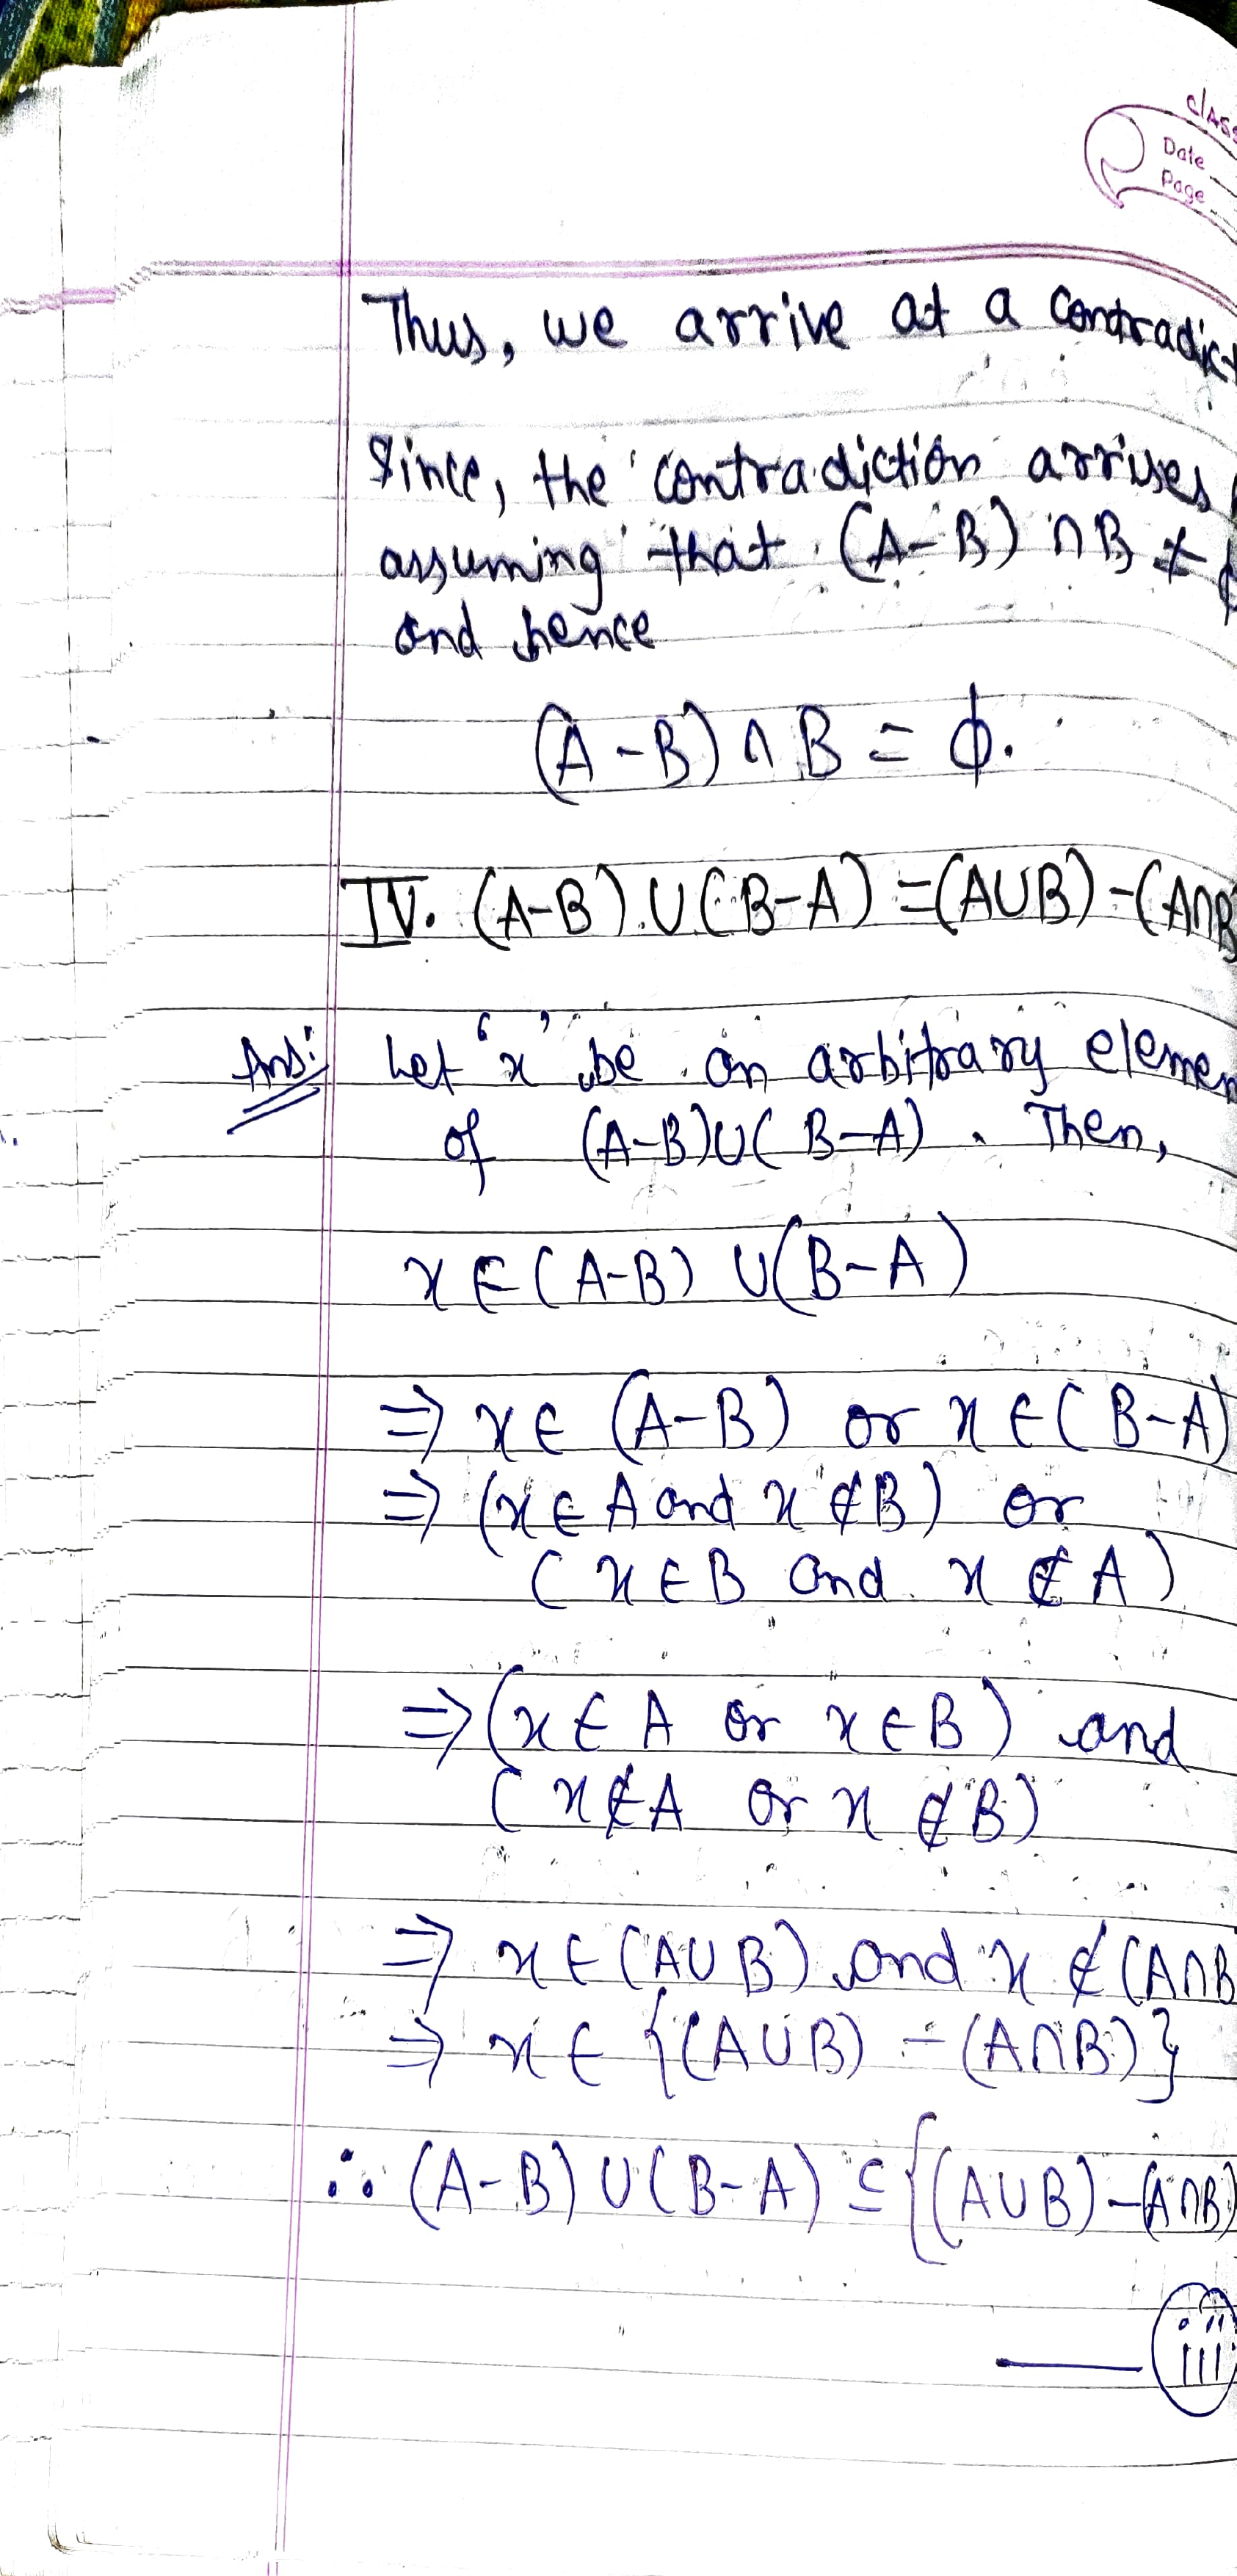 CLASS
Date
Page
Thus, we arrive at a
Since, the contradiction arrises
assuming that (A-B) ∩ B ≠ ϕ
and hence
(A-B) ∩ B = ϕ.
IV. (A-B) ∪ (B-A) = (A∪B) - (A∩B
Ans: Let 'x' be an arbitrary
of (A-B)∪(B-A). Then,
x ∈ (A-B) ∪ (B-A)
⇒ x ∈ (A-B) or x ∈ (B-A)
⇒ (x ∈ A and x ∉ B) or
(x ∈ B and x ∉ A)
⇒ (x ∈ A or x ∈ B) and
(x ∉ A or x ∉ B)
⇒ x ∈ (A∪B) and x ∉ (A∩B
⇒ x ∈ {(A∪B) - (A∩B)}
∴ (A-B) ∪ (B-A) ⊆ {(A∪B) - (A∩B)
— iii